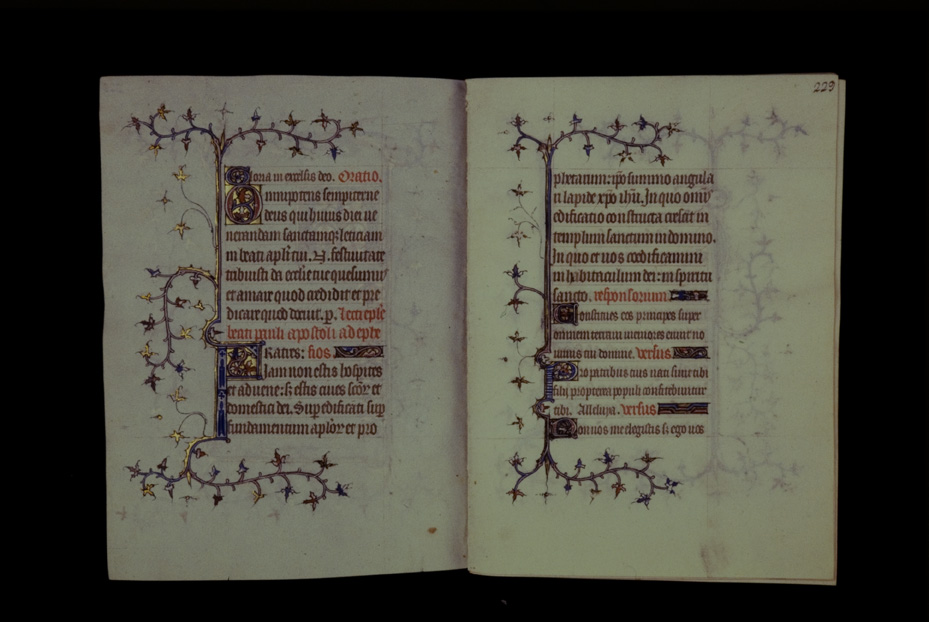 Gloria in excelsis deo. Oratio.
Omnipotens sempiterne
deus qui huius diei ue
nerandam sanctamq; leticiam
in beati apli tui. N. festiuitate
tribuisti da ecclie tue quesumus
et amare quod credidit et pre
dicare quod docuit. p. Lectio eple
beati pauli apostoli ad ephe
Fratres: sios
Iam non estis hospites
et aduene: s; estis ciues scor et
domestici dei. Supedificati sup
fundamentum aplor et pro
229
phetarum: ipo summo angula
ri lapide xpo ihu. In quo omis
edificatio constructa crescit in
templum sanctum in domino.
In quo et uos coedificamini
in habitaculum dei: in spiritu
sancto. responsorium
Constitues eos principes super
omnem terram memores erunt no
minis tui domine. versus
Pro patribus tuis nati sunt tibi
filii, propterea populi confitebuntur
tibi. Alleluya. versus
Non uos me elegistis s; ego uos